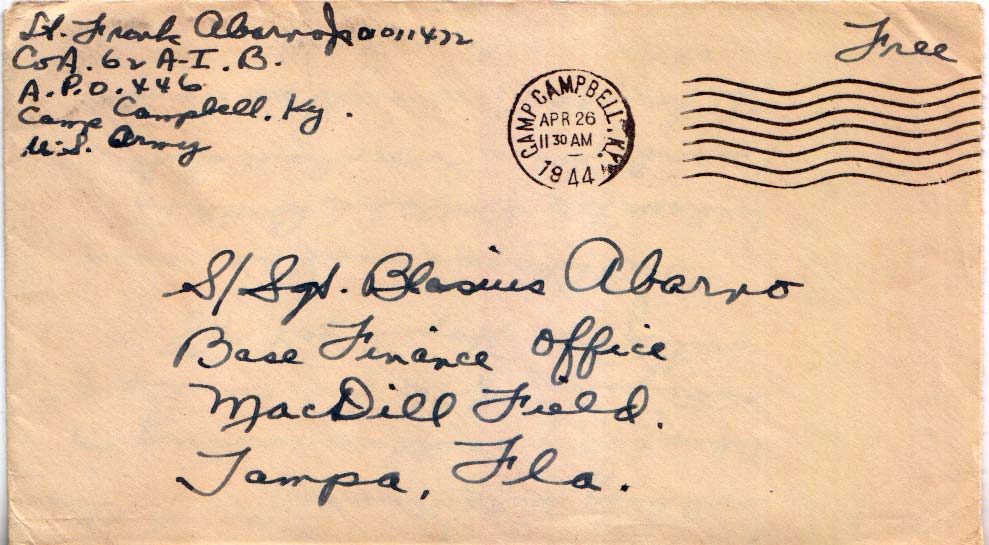 Lt. Frank Abarno Jr 01011472
Co A. 62 A-I.B.
A.P.O. 446
Camp Campbell, Ky.
U.S. Army
Free
CAMP CAMPBELL, KY.
APR 26
11 30 AM
1944
S/Sgt. Blasius Abarno
Base Finance Office
MacDill Field.
Tampa, Fla.